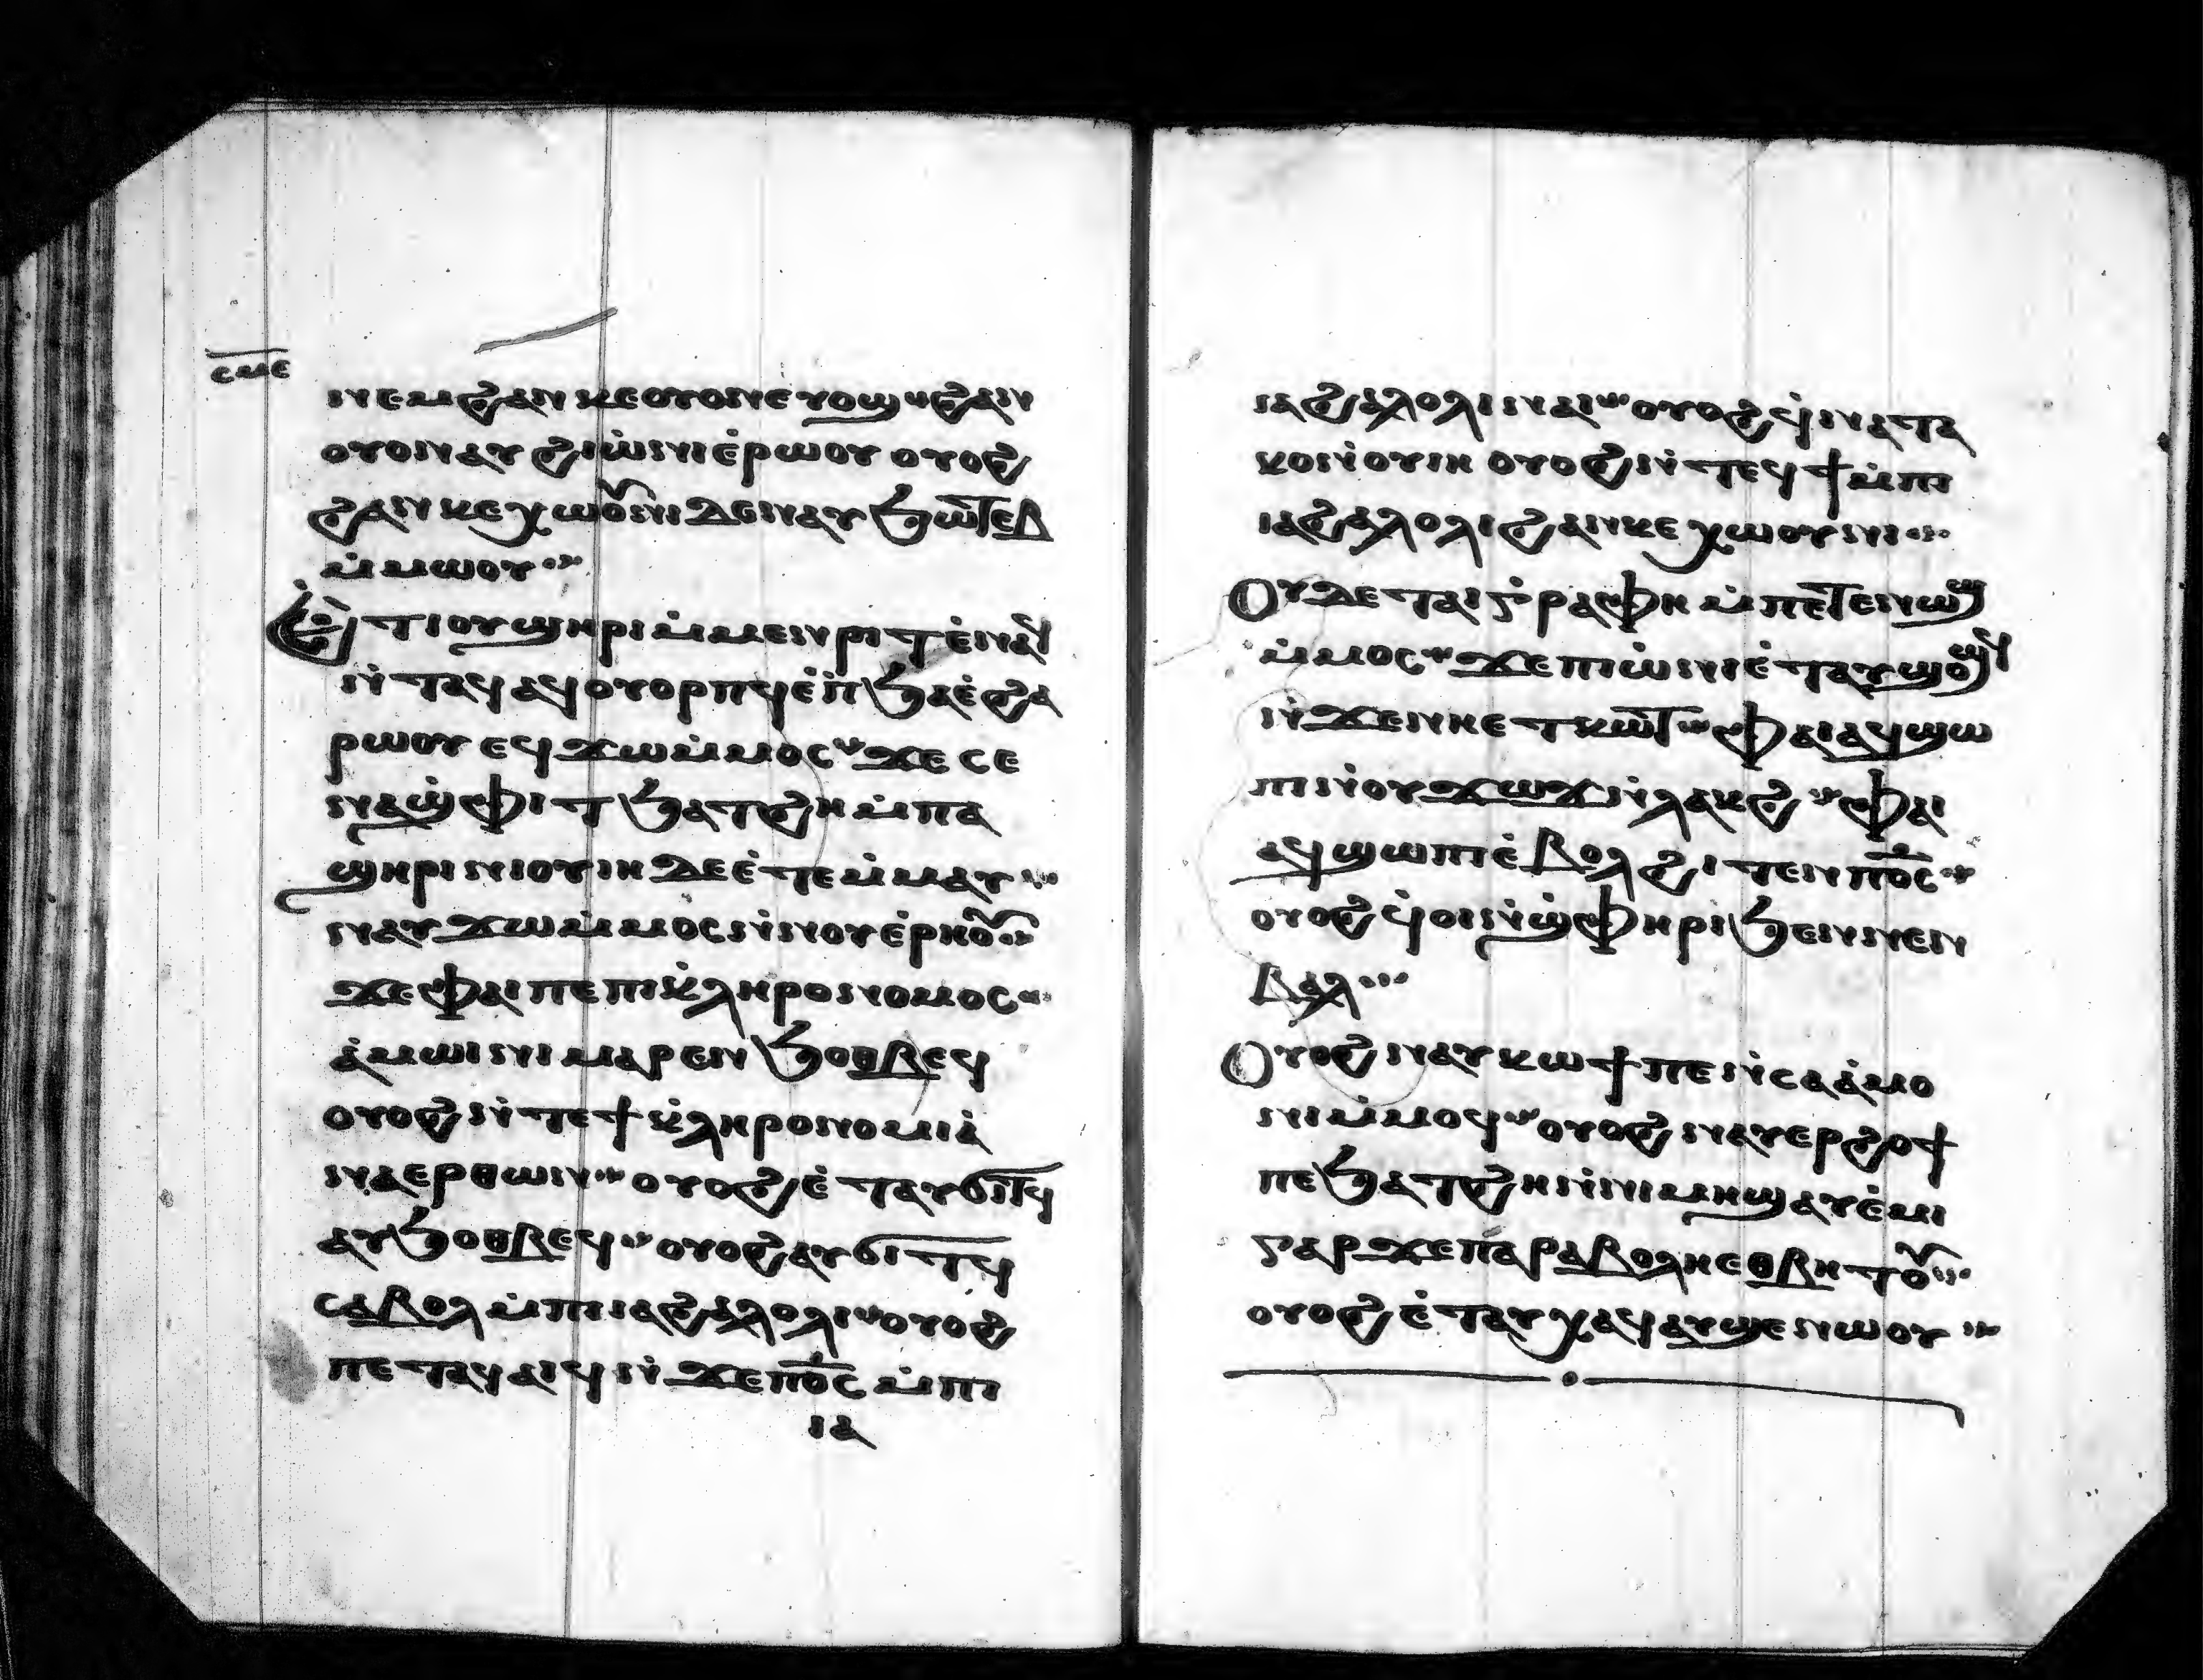 ⲥⲙⲉ
ⲛⲉⲙϩⲁⲛⲕⲉⲟⲩⲟⲛⲉⲩⲟϣ ϩⲁⲛ
ⲟⲩⲟⲛⲁⲩϩⲓⲱ̇ⲛⲓⲉ̇ⲣⲱⲟⲩ ⲟⲩⲟϩ
ϩⲁⲛⲕⲉⲭⲱⲟⲩⲛⲓⲇⲉⲛⲁⲩϧⲱⲧⲉⲃ
ⲙ̇ⲙⲱⲟⲩ
ⲉⲧⲓⲟⲩϣⲏⲣⲓⲙ̇ⲙⲉⲛⲣⲓⲧⲉ̇ⲛⲁϥ
ⲛ̇ⲧⲁϥⲁϥⲟⲩⲟⲣⲡϥⲉ̇ⲡϧⲁⲉ̇ϩⲁ
ⲣⲱⲟⲩ ⲉϥϫⲱⲙ̇ⲙⲟⲥ ϫⲉ ⲥⲉ
ⲛⲁϣ̇ⲫⲓⲧϧⲁⲧϩⲏⲙ̇ⲡⲁ
ϣⲏⲣⲓ ⲛⲓⲟⲩⲓⲏ ⲇⲉⲉ̇ⲧⲉⲙ̇ⲙⲁⲩ
ⲛⲁⲩϫⲱⲙ̇ⲙⲟⲥⲛ̇ⲛⲟⲩⲉ̇ⲣⲏⲟⲩ
ϫⲉⲫⲁⲓⲡⲉⲡⲓⲕ̇ⲗⲏⲣⲟⲛⲟⲙⲟⲥ
ⲁ̇ⲙⲱⲓⲛⲓⲙⲁⲣⲉⲛϧⲟⲑⲃⲉϥ
ⲟⲩⲟϩⲛ̇ⲧⲉϯⲕ̇ⲗⲏⲣⲟⲛⲟⲙⲓⲁ̇
ⲛⲁⲉⲣⲑⲱⲛ ⲟⲩⲟϩⲉ̇ⲧⲁⲩϭⲓⲧϥ
ⲁⲩϧⲟⲑⲃⲉϥ ⲟⲩⲟϩⲁⲩϭⲓⲧϥ
ⲥⲁⲃⲟⲗⲙ̇ⲡⲓⲓⲁϩⲁⲗⲟⲗⲓ ⲟⲩⲟϩ
ⲡⲉⲧⲁϥⲁⲓϥⲛ̇ϫⲉⲡⲟ̅ⲥ̅ⲙ̇ⲡⲓ
ⲓⲁ
ⲓⲁϩⲁⲗⲟⲗⲓⲛⲁⲓ ⲟⲩⲟϩϥ̇ⲛⲁⲧⲁ
ⲕⲟⲛ̇ⲟⲩⲓⲏ ⲟⲩⲟϩⲛ̇ⲧⲉϥϯⲙ̇ⲡⲓ
ⲓⲁϩⲁⲗⲟⲗⲓϩⲁⲛⲕⲉⲭⲱⲟⲩⲛⲓ
ⲟⲩⲇⲉⲧⲁⲓⲅ̇ⲣⲁⲫⲏⲙ̇ⲡⲉⲧⲉⲛⲱϣ
ⲙ̇ⲙⲟⲥ ϫⲉⲡⲓⲱ̇ⲛⲓⲉ̇ⲧⲁⲩϣⲟϣϥ
ⲛ̇ϫⲉⲛⲏⲉⲧⲕⲱⲧ ⲫⲁⲓⲁϥϣⲱ
ⲡⲓⲛ̇ⲟⲩϫⲱϫⲛ̇ⲗⲁⲕϩ ⲫⲁⲓ
ⲁϥϣⲱⲡⲓⲉ̇ⲃⲟⲗϩⲓⲧⲉⲛⲡⲟ̅ⲥ̅
ⲟⲩⲟϩϥ̇ⲟⲓⲛ̇ϣ̇ⲫⲏⲣⲓϧⲉⲛⲛⲉⲛ
ⲃⲁⲗ
ⲟⲩⲟϩⲛⲁⲩⲕⲱϯⲡⲉⲛ̇ⲥⲁⲁ̇ⲙⲟ
ⲛⲓⲙ̇ⲙⲟϥ ⲟⲩⲟϩⲛⲁⲩⲉⲣϩⲟϯ
ⲡⲉϧⲁⲧϩⲏⲛ̇ⲛⲓⲙⲏϣⲁⲩⲉ̇ⲙⲓ
ⲅⲁⲣϫⲉⲡⲁⲣⲁⲃⲟⲗⲏⲉⲑⲃⲏⲧⲟⲩ
ⲟⲩⲟϩⲉ̇ⲧⲁⲩⲭⲁϥⲁⲩϣⲉⲛⲱⲟⲩ